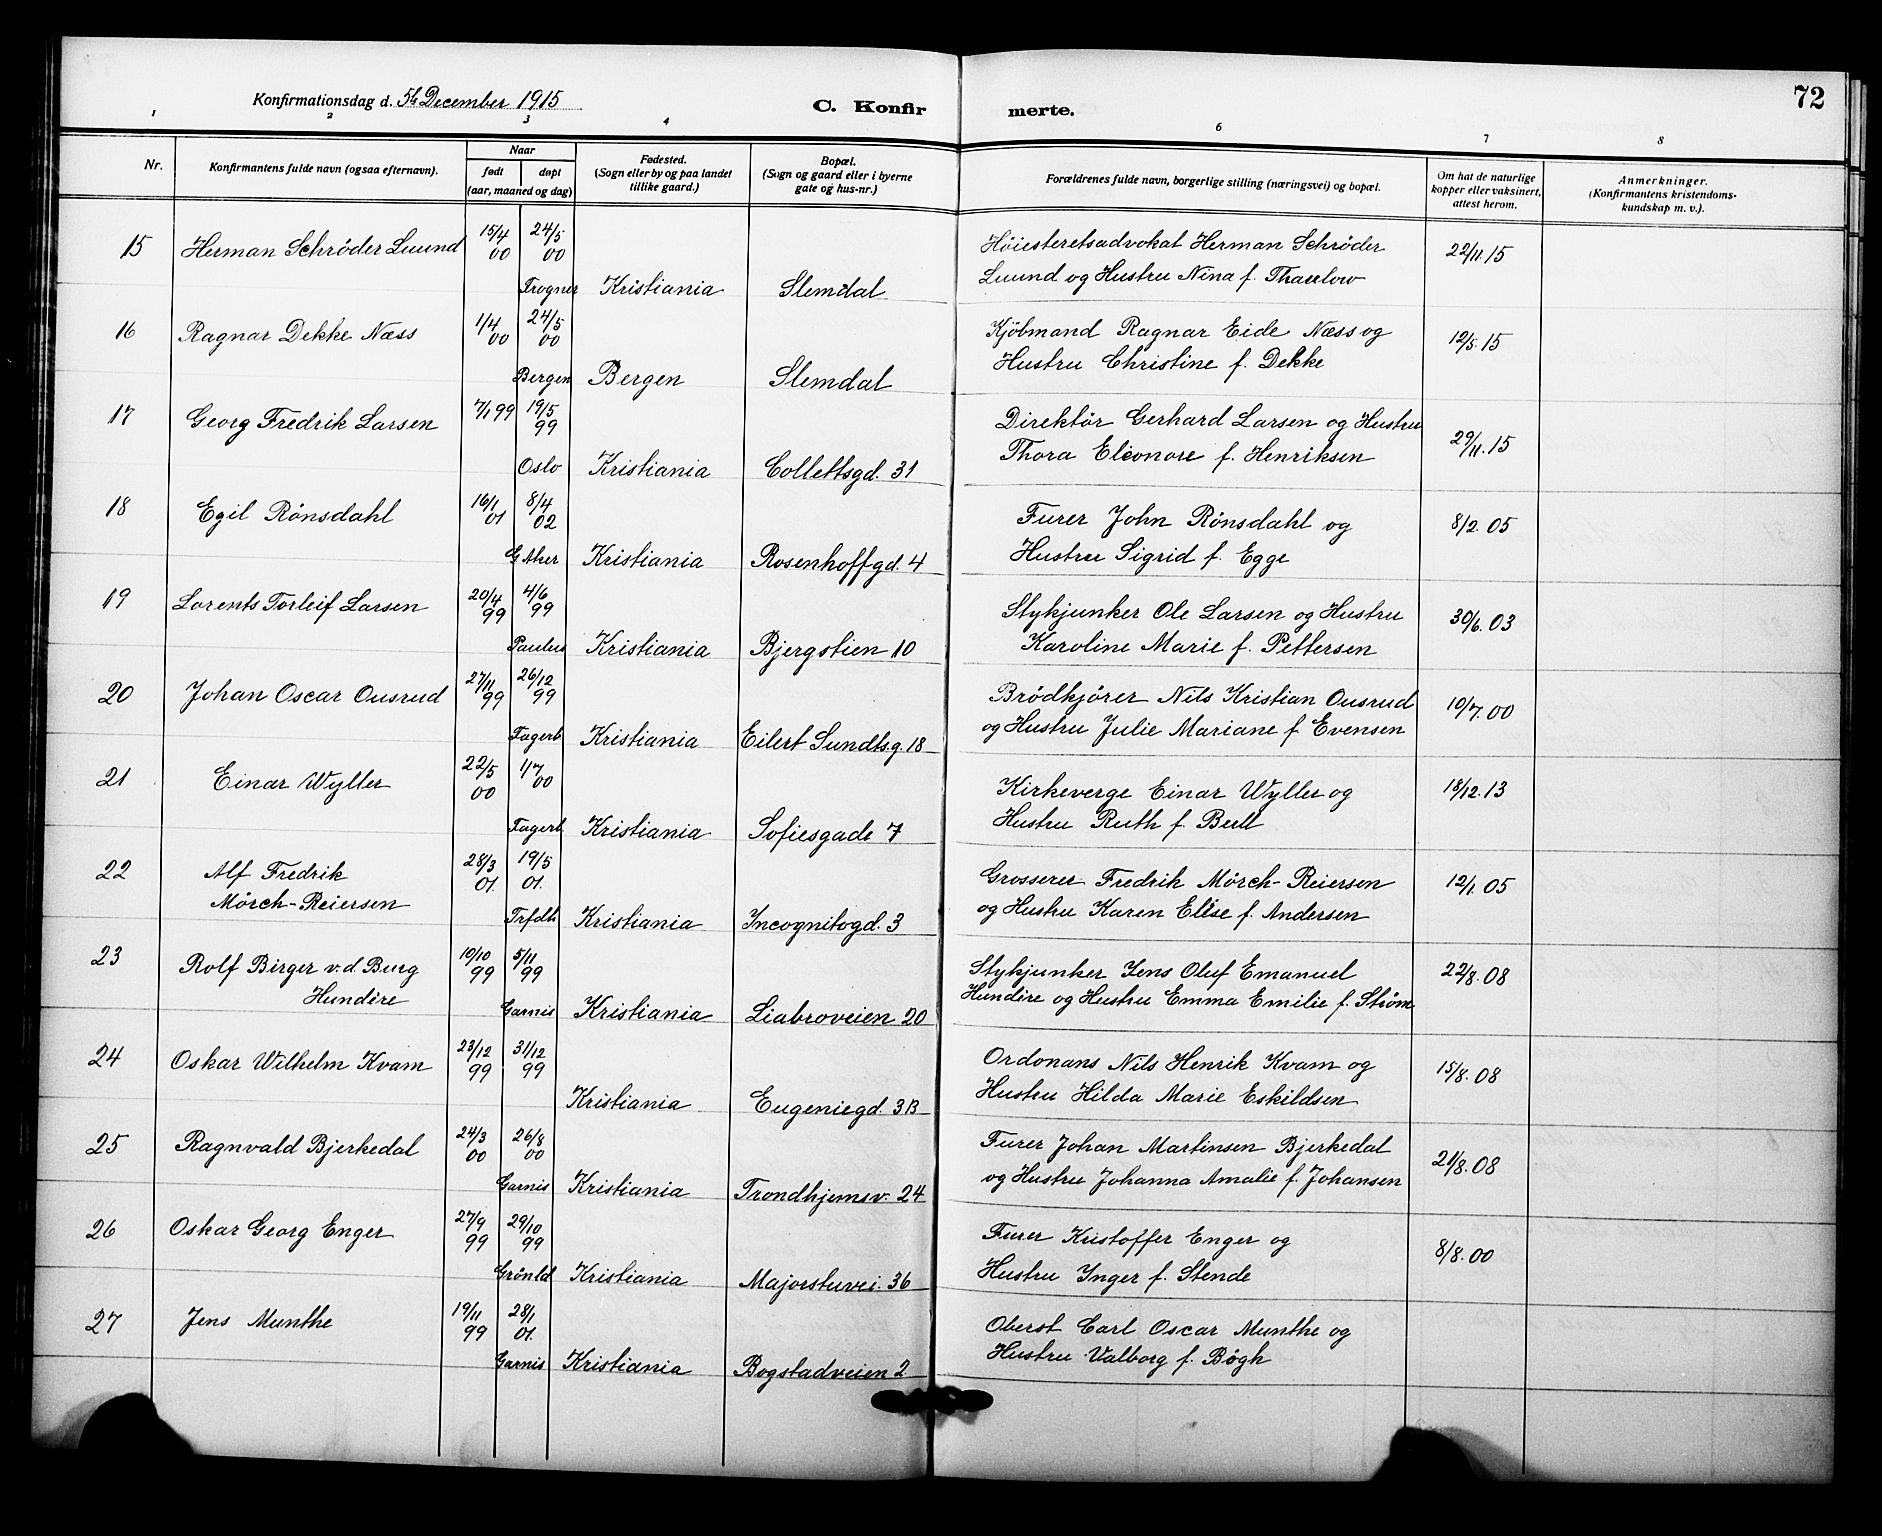 Konfirmationsdag d. 5te December 1915
C. Konfirmerte.
72
1 2 3 4 6 7 8
Nr.
Konfirmantens fulde navn (ogsaa efternavn).
Naar
født døpt
(aar, maaned og dag)
Fødested.
(Sogn eller by og paa landet
tillike gaard.)
Bopæl.
(Sogn og gaard eller i byerne
gate og hus-nr.)
Forældrenes fulde navn, borgerlige stilling (næringsvei) og bopæl.
Om hat de naturlige
kopper eller vaksinert,
attest herom.
Anmerkninger.
(Konfirmantens kristendoms-
kundskap m. v.).
15 Herman Schrøder Luund 15/4 00 24/5 00 Høiesteretsadvokat Herman Schrøder 22/11.15
Frogner Kristiania Slemdal Luund og Hustru Nina f. Thaulow
16 Ragnar Dekke Næss 1/4 00 24/5 00 Kjøbmand Ragnar Eide Næss og 12/5.15
Bergen Bergen Slemdal Hustru Christine f. Dekke
17 Georg Fredrik Larsen 7/1 99 19/5 99 Direktør Gerhard Larsen og Hustru 29/11.15
Oslo Kristiania Collettsgd. 31 Thora Eleonore f. Henriksen
18 Egil Rønsdahl 16/1 01 8/4 02 Furer John Rønsdahl og 8/2.05
G. Aker Kristiania Rosenhoffgd. 4 Hustru Sigrid f. Egge
19 Lorents Torleif Larsen 20/4 99 4/6 99 Stykjunker Ole Larsen og Hustru 30/6.03
Paulus Kristiania Bjergstien 10 Karoline Marie f. Pettersen
20 Johan Oscar Ousrud 27/11 99 26/12 99 Brødkjører Nils Kristian Ousrud 10/7.00
Fagerb Kristiania Eilert Sundtsg. 18 og Hustru Julie Mariane f Evensen
21 Einar Wyller 22/5 00 1/7 00 Kirkeverge Einar Wyller og 18/12.13
Fagerb Kristiania Sofiesgade 7 Hustru Ruth f. Bull
22 Alf Fredrik 28/3 01. 19/5 01. Grosserer Fredrik Mørch-Reiersen 12/1.05
Mørch-Reiersen Trfdh Kristiania Incognitogd. 3 og Hustru Karen Elise f. Andersen
23 Rolf Birger v. d. Burg 10/10 99 5/11 99 Stykjunker Jens Oluf Emanuel 22/8.08
Hundere Garnis Kristiania Liabroveien 20 Hundere og Hustru Emma Emilie f. Strøm
24 Oskar Wilhelm Kvam 23/12 99 31/12 99 Ordonans Nils Henrik Kvam og 15/8.08
Kristiania Eugeniegd. 3B Hustru Hilda Marie Eskildsen
25 Ragnvald Bjerkedal 24/3 00 26/8 00 Furer Johan Martinsen Bjerkedal 21/8.08
Garnis Kristiania Trondhjemsv. 24 og Hustru Johanna Amalie f. Johansen
26 Oskar Georg Enger 27/9 99 29/10 99 Furer Kristoffer Enger og 8/8.00
Grønld Kristiania Majorstuvei. 36 Hustru Inger f. Stende
27 Jens Munthe 19/11 99 28/1 01. Oberst Carl Oscar Munthe og
Garnis Kristiania Bogstadveien 2 Hustru Valborg f. Bøgh